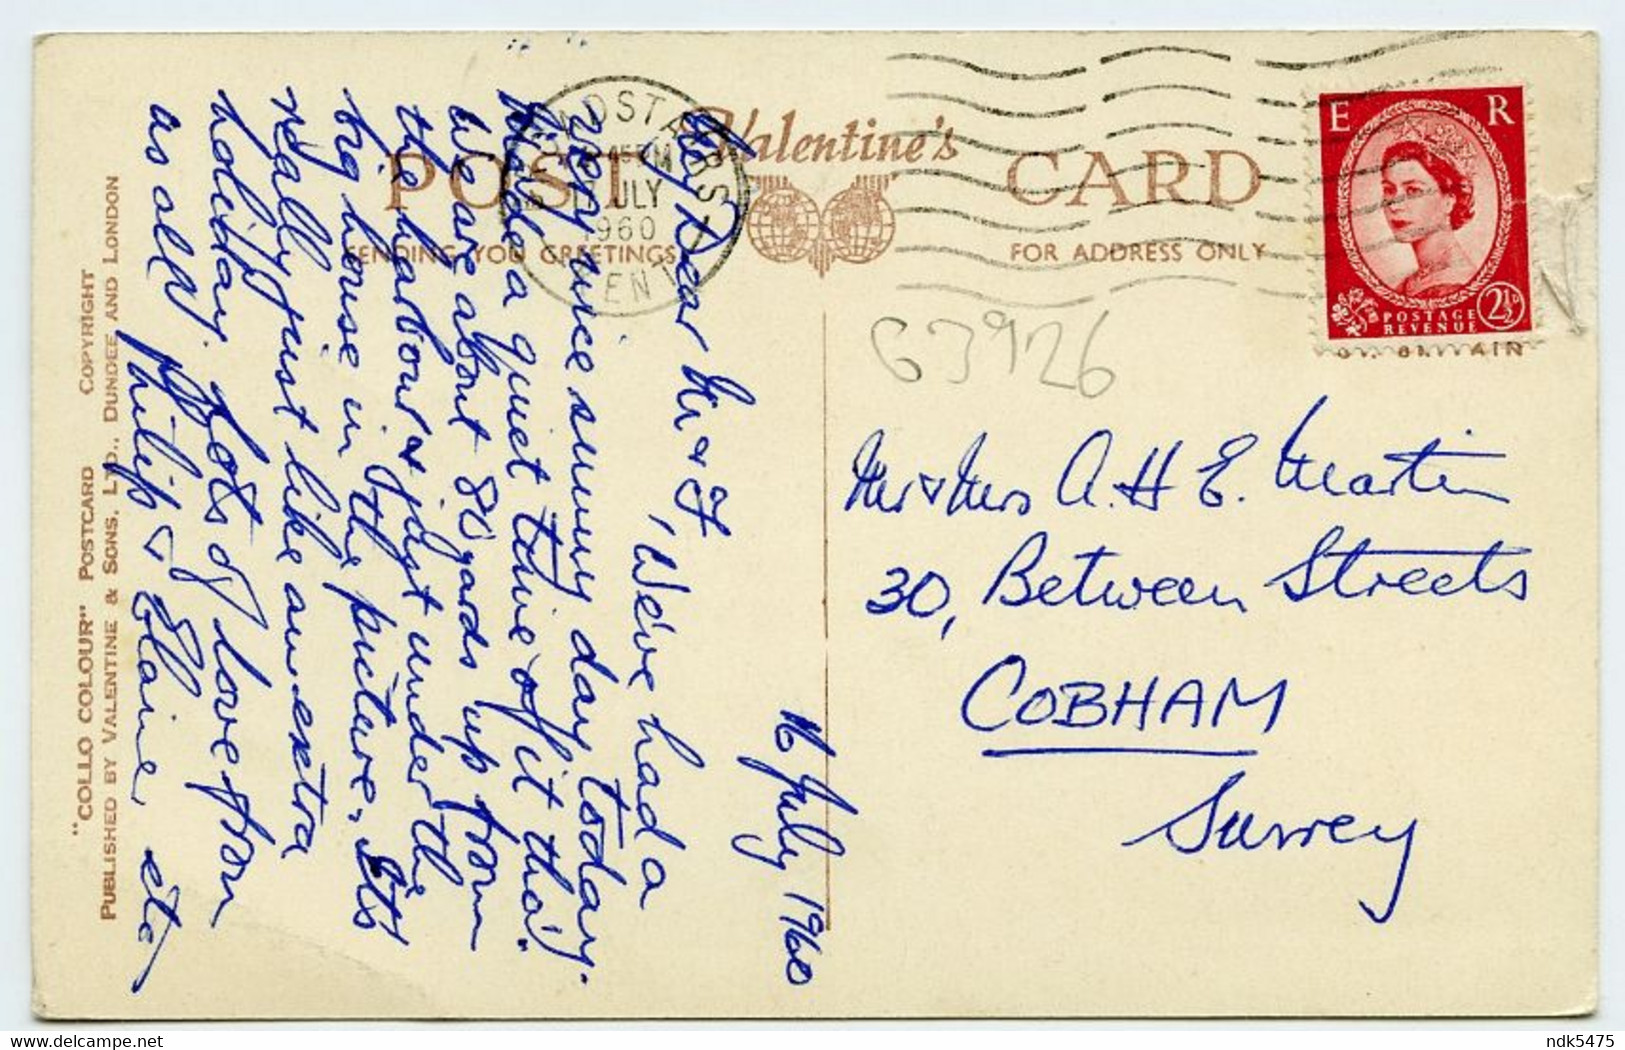 Valentine's
POST CARD
SENDING YOU GREETINGS
FOR ADDRESS ONLY
BROADSTAIRS
15 PM
17 JULY
1960
KENT
E R
POSTAGE
REVENUE
2½D
BRITAIN
G3926
16 July 1960
My Dear M & F,
We've had a
very nice sunny day today.
Made a quiet time of it tho'.
We are about 80 yards up from
the harbour & just under the
big house in the picture. It's
really just like an extra
holiday. Lots of love from
us all,
Philip & Elaine etc
Mr & Mrs A. H E. Martin
30, Between Streets
COBHAM
Surrey
"COLLO COLOUR" POSTCARD COPYRIGHT
PUBLISHED BY VALENTINE & SONS, LTD., DUNDEE AND LONDON
ndk5475